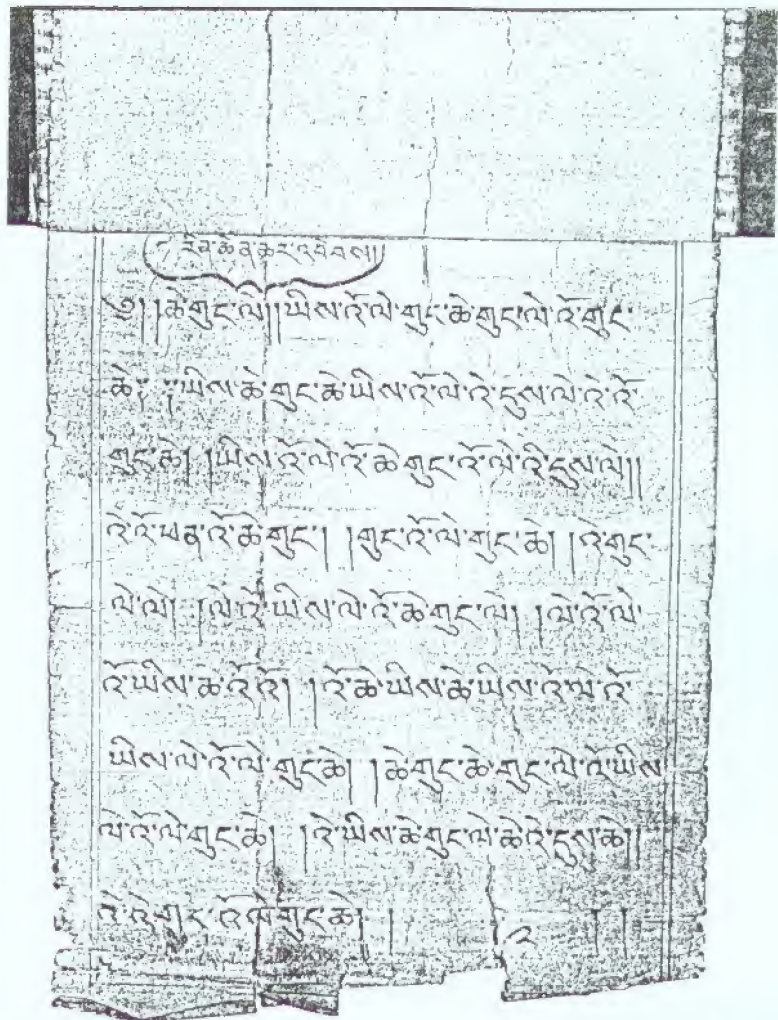 ༡ རིན་ཆེན་ཆར་འབེབས།།
༄། །ཆེ་གུང་ལེ། །ཡིས་འོ་ལེ་གུང་ཆེ་གུང་ལེ་འོ་གུང་
ཆེ༔ ༔ཡིས་ཆེ་གུང་ཆེ་ཡིས་འོ་ལེ་འེ་དུས་ལེ་འེ་འོ་
གུང་ཆེ། །ཡིས་འོ་ལེ་འོ་ཆེ་གུང་འོ་ལེ་འེ་དུས་ལེ།།
འེ་འོ་ཡན་འོ་ཆེ་གུང་། །གུང་འོ་ལེ་གུང་ཆེ། །འེ་གུང་
ལེ་ལེ། །ལེ་འེ་ཡིས་ལེ་འོ་ཆེ་གུང་ལེ། །ལེ་འོ་ལེ་
འོ་ཡིས་ཆེ་འོ་འོ། །འོ་ཆེ་ཡིས་ཆེ་ཡིས་འོ་ལེ་འོ་
ཡིས་ལེ་འོ་ལེ་གུང་ཆེ། །ཆེ་གུང་ཆེ་གུང་ལེ་འོ་ཡིས་
ལེ་འོ་ལེ་གུང་ཆེ། །འེ་ཡིས་ཆེ་གུང་ལེ་ཆེ་འེ་དུས་ཆེ།།
འེ་འེ་གུང་འོ་ལེ་གུང་ཆེ། ། ༢ ། །